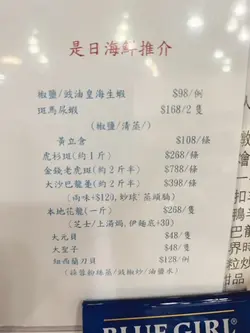 是日海鮮推介
椒鹽/豉油皇海生蝦 $98/例
斑馬尿蝦 $168/2隻
(椒鹽/清蒸/)
黃立倉 $108/條
虎杉斑(約1斤) $268/條
金錢老虎斑(約2斤半) $788/條
大沙巴龍躉(約2斤半) $398/條
(兩味+$120, 炒球 蒸頭腩)
本地花龍(一斤) $268/隻
(芝士/上湯焗, 伊麵底+30)
大元貝 $48/隻
大聖子 $48/隻
紐西蘭刀貝 $128/例
(蒜蓉粉絲蒸/豉椒炒/油鹽水)
BLUE GIRL